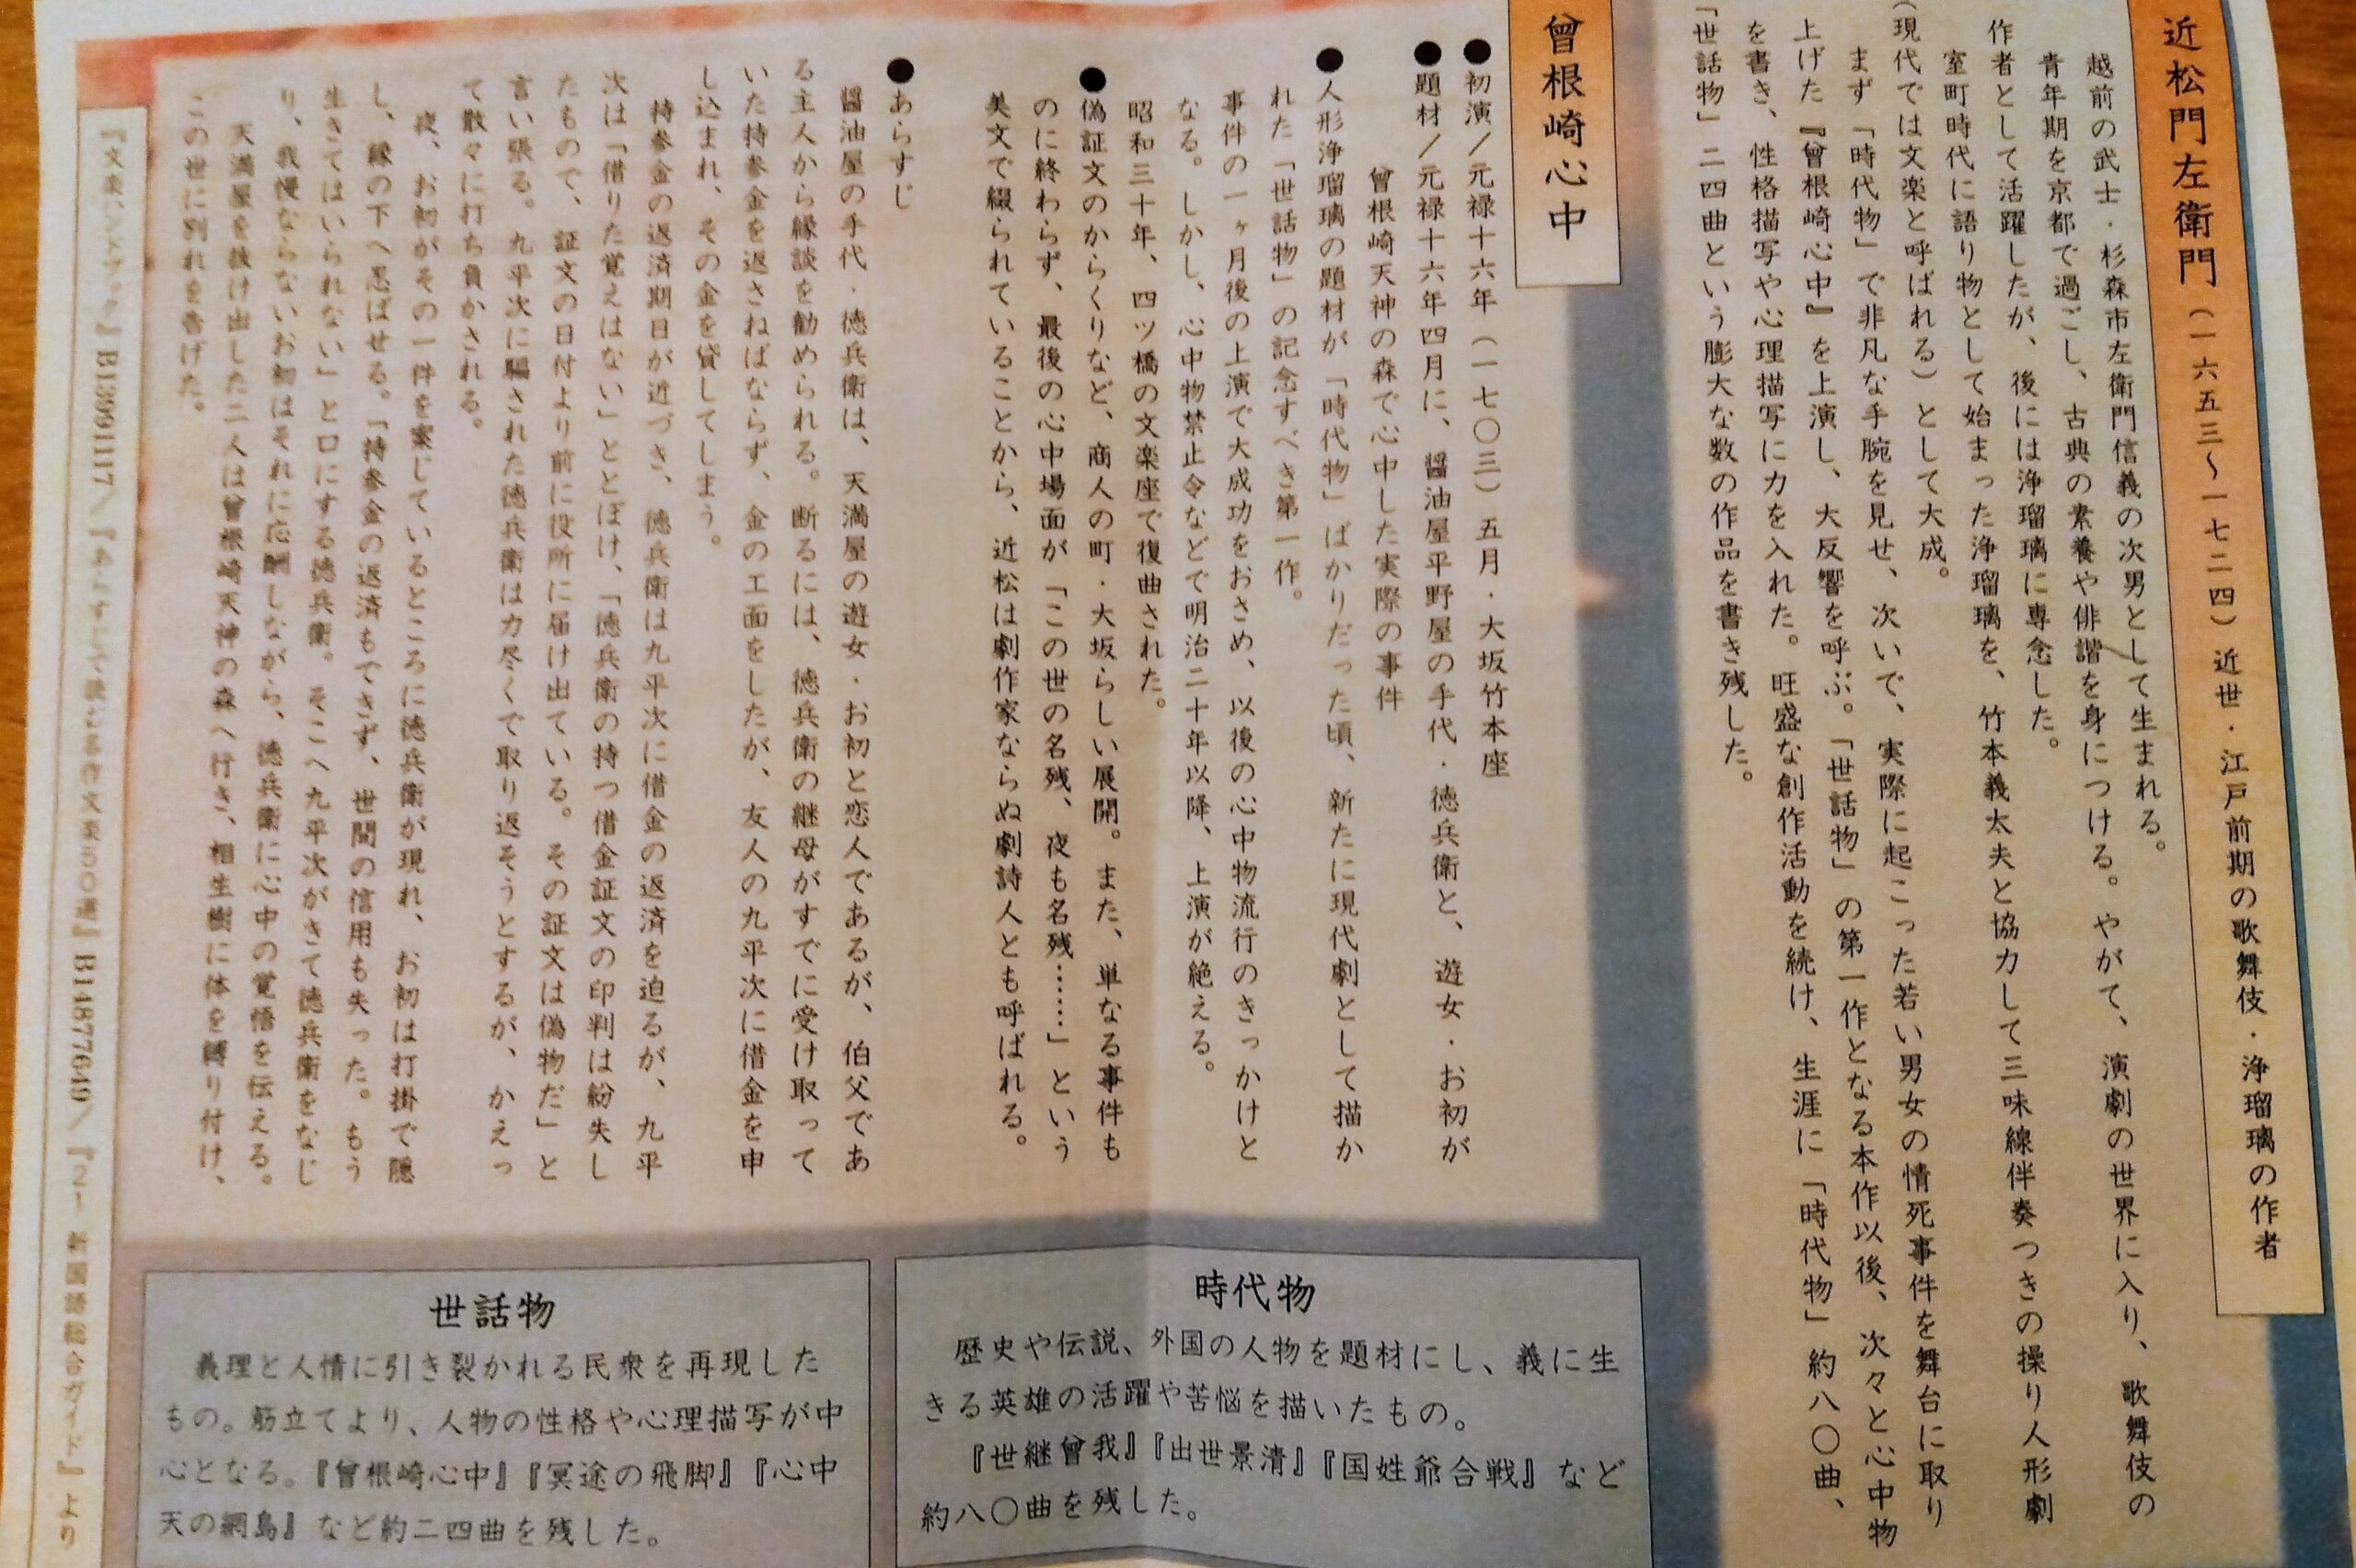 近松門左衛門（一六五三～一七二四）近世・江戸前期の歌舞伎・浄瑠璃の作者
越前の武士・杉森市左衛門信義の次男として生まれる。
青年期を京都で過ごし、古典の素養や俳諧を身につける。やがて、演劇の世界に入り、歌舞伎の
作者として活躍したが、後には浄瑠璃に専念した。
室町時代に語り物として始まった浄瑠璃を、竹本義太夫と協力して三味線伴奏つきの操り人形劇
（現代では文楽と呼ばれる）として大成。
まず「時代物」で非凡な手腕を見せ、次いで、実際に起こった若い男女の情死事件を舞台に取り
上げた『曾根崎心中』を上演し、大反響を呼ぶ。「世話物」の第一作となる本作以後、次々と心中物
を書き、性格描写や心理描写に力を入れた。旺盛な創作活動を続け、生涯に「時代物」約八〇曲、
「世話物」二四曲という膨大な数の作品を書き残した。
曾根崎心中
●初演／元禄十六年（一七〇三）五月・大坂竹本座
●題材／元禄十六年四月に、醤油屋平野屋の手代・徳兵衛と、遊女・お初が
曾根崎天神の森で心中した実際の事件
●人形浄瑠璃の題材が「時代物」ばかりだった頃、新たに現代劇として描か
れた「世話物」の記念すべき第一作。
事件の一ヶ月後の上演で大成功をおさめ、以後の心中物流行のきっかけと
なる。しかし、心中物禁止令などで明治二十年以降、上演が絶える。
昭和三十年、四ツ橋の文楽座で復曲された。
●偽証文のからくりなど、商人の町・大坂らしい展開。また、単なる事件も
のに終わらず、最後の心中場面が「この世の名残、夜も名残……」という
美文で綴られていることから、近松は劇作家ならぬ劇詩人とも呼ばれる。
●あらすじ
醤油屋の手代・徳兵衛は、天満屋の遊女・お初と恋人であるが、伯父であ
る主人から縁談を勧められる。断るには、徳兵衛の継母がすでに受け取って
いた持参金を返さねばならず、金の工面をしたが、友人の九平次に借金を申
し込まれ、その金を貸してしまう。
持参金の返済期日が近づき、徳兵衛は九平次に借金の返済を迫るが、九平
次は「借りた覚えはない」ととぼけ、「徳兵衛の持つ借金証文の印判は紛失し
たもので、証文の日付より前に役所に届け出ている。その証文は偽物だ」と
言い張る。九平次に騙された徳兵衛は力尽くで取り返そうとするが、かえっ
て散々に打ち負かされる。
夜、お初がその一件を案じているところに徳兵衛が現れ、お初は打掛で隠
し、縁の下へ忍ばせる。「持参金の返済もできず、世間の信用も失った。もう
生きてはいられない」と口にする徳兵衛。そこへ九平次がきて徳兵衛をなじ
り、我慢ならないお初はそれに応酬しながら、徳兵衛に心中の覚悟を伝える。
天満屋を抜け出した二人は曾根崎天神の森へ行き、相生樹に体を縛り付け、
この世に別れを告げた。
時代物
歴史や伝説、外国の人物を題材にし、義に生
きる英雄の活躍や苦悩を描いたもの。
『世継曾我』『出世景清』『国姓爺合戦』など
約八〇曲を残した。
世話物
義理と人情に引き裂かれる民衆を再現した
もの。筋立てより、人物の性格や心理描写が中
心となる。『曾根崎心中』『冥途の飛脚』『心中
天の網島』など約二四曲を残した。
『文楽ハンドブック』B13991117／『あらすじで読む名作文楽50選』B14877649／『21 新国語総合ガイド』より